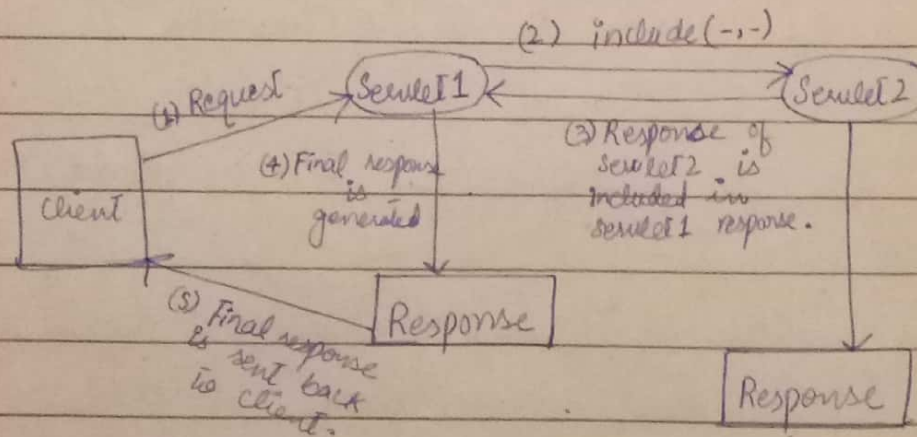 (2) include(-,-)
(1) Request
Servlet1
Servlet2
Client
(4) Final response
is
generated
(3) Response of
servlet2 is
included in
servlet1 response.
Response
(5) Final response
is sent back
to client.
Response